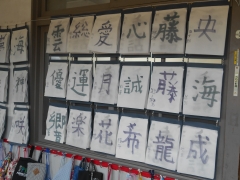 海 雲 総 愛 心 藤 央
優 運 月 誠 藤 海
咲 郷 楽 花 希 龍 成